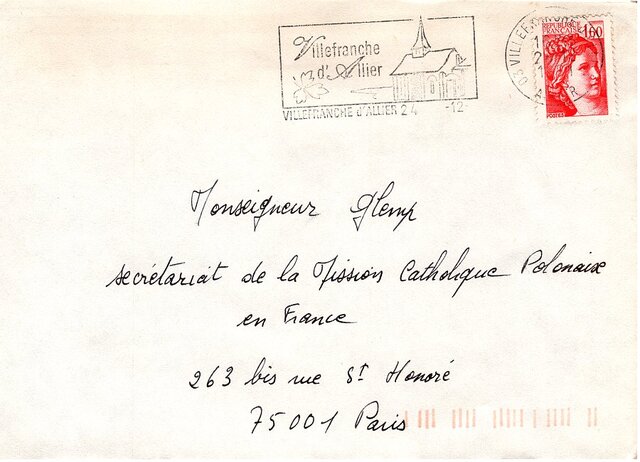 Villefranche
d'Allier
VILLEFRANCHE d'ALLIER 24 -12-
03 VILLEFRANCHE
REPUBLIQUE
FRANÇAISE 1,60
POSTES
Monseigneur Glemp
secrétariat de la Mission Catholique Polonaise
en France
263 bis rue St Honoré
75001 Paris